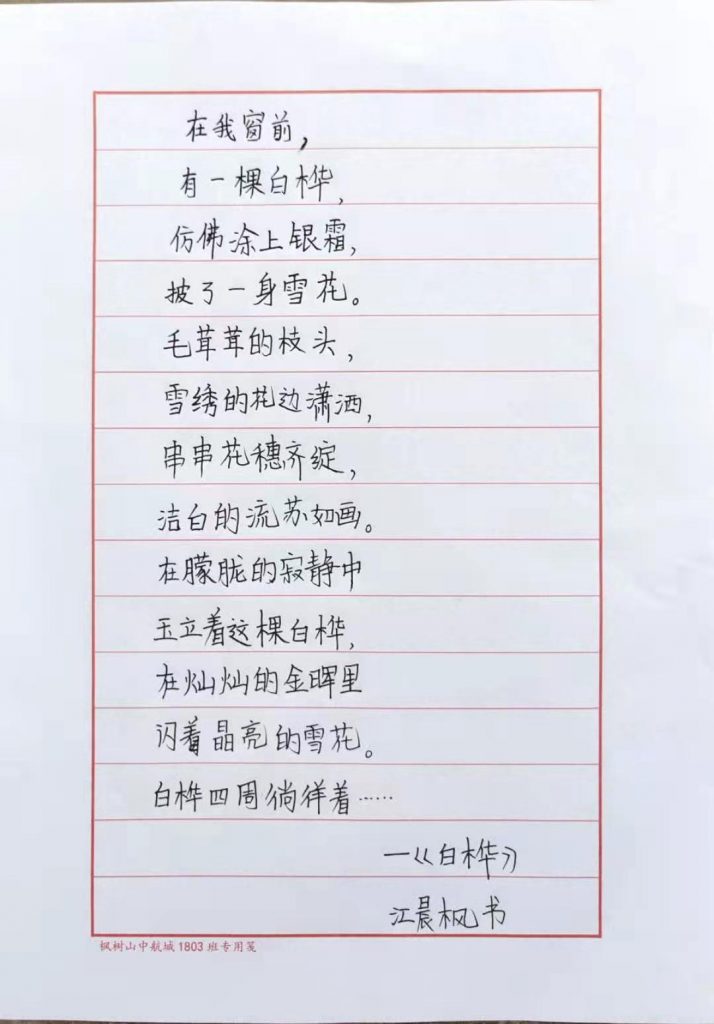 在我窗前，
有一棵白桦，
仿佛涂上银霜，
披了一身雪花。
毛茸茸的枝头，
雪绣的花边潇洒，
串串花穗齐绽，
洁白的流苏如画。
在朦胧的寂静中
玉立着这棵白桦，
在灿灿的金晖里
闪着晶亮的雪花。
白桦四周徜徉着……
—《白桦》
江晨枫书
枫树山中航城1803班专用笺